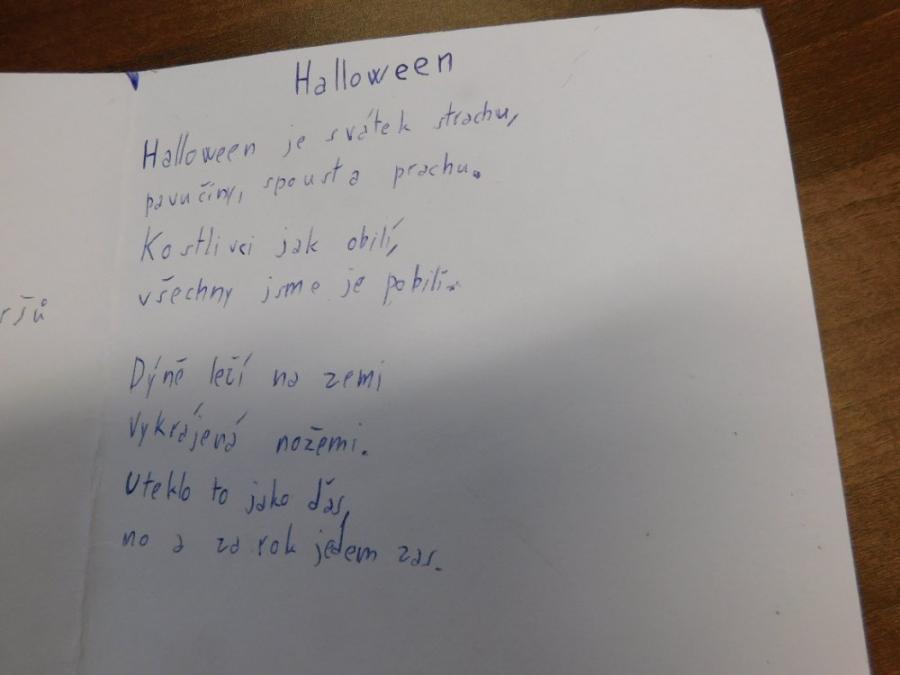 Halloween
Halloween je svátek strachu,
pavučiny, spousta prachu.
Kostlivci jak obilí,
všechny jsme je pobili.
Dýně leží na zemi
vykrájená nožemi.
Uteklo to jako ďas,
no a za rok jedem zas.